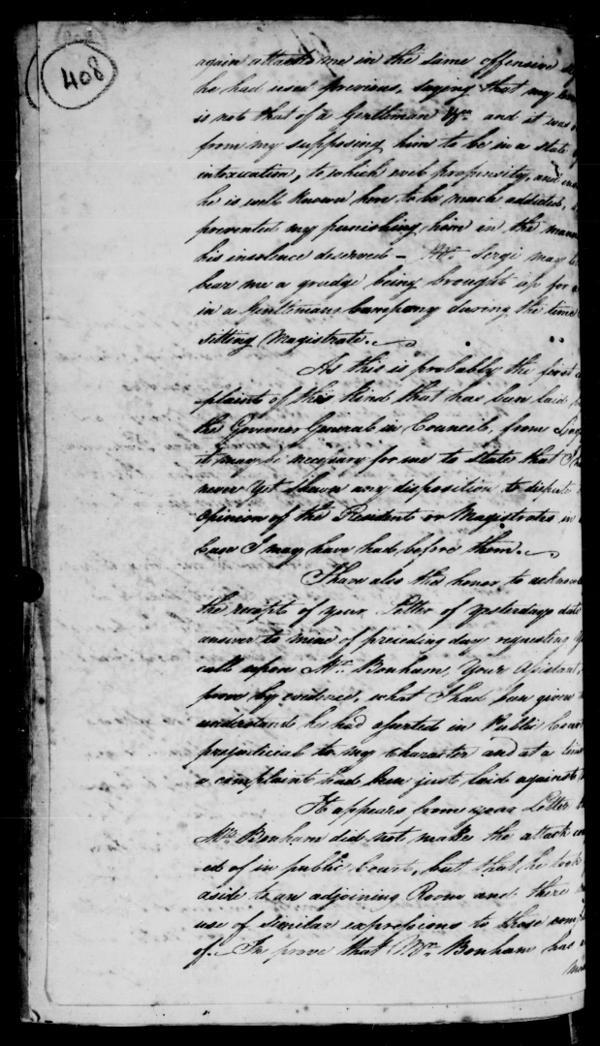 408
again attacked me in the same offensive
he had used previous, saying that my
is not that of a Gentleman &c. and it was
from my supposing him to be in a state
intoxication, to which evil propensity, and
he is well known here to be much addicted,
prevented my punishing him in the
his insolence deserved — Mr. Sergi may
bear me a grudge being brought up for
in a Gentlemans Company during the time
sitting Magistrate.
As this is probably the first
plaint of this kind that has been laid
the Governor General in Council, from
it may be necessary for me to state that I
never yet shewn any disposition to dispute
opinion of the Resident or Magistrates in
Case I may have had before them.
I have also the honor to
the receipt of your Letter of yesterdays date
answer to mine of preceding day requesting
call upon Mr. Bonham, Your Assistant,
prove by evidence, what I had been given
understand he had asserted in Public Court
prejudicial to my Character and at a time
a complaint had been just laid against
It appears from your Letter
Mr. Bonham did not make the attack
ed of in public Court, but that he took
aside to an adjoining Room and there
use of similar expressions to those
of. To prove that Mr. Bonham has